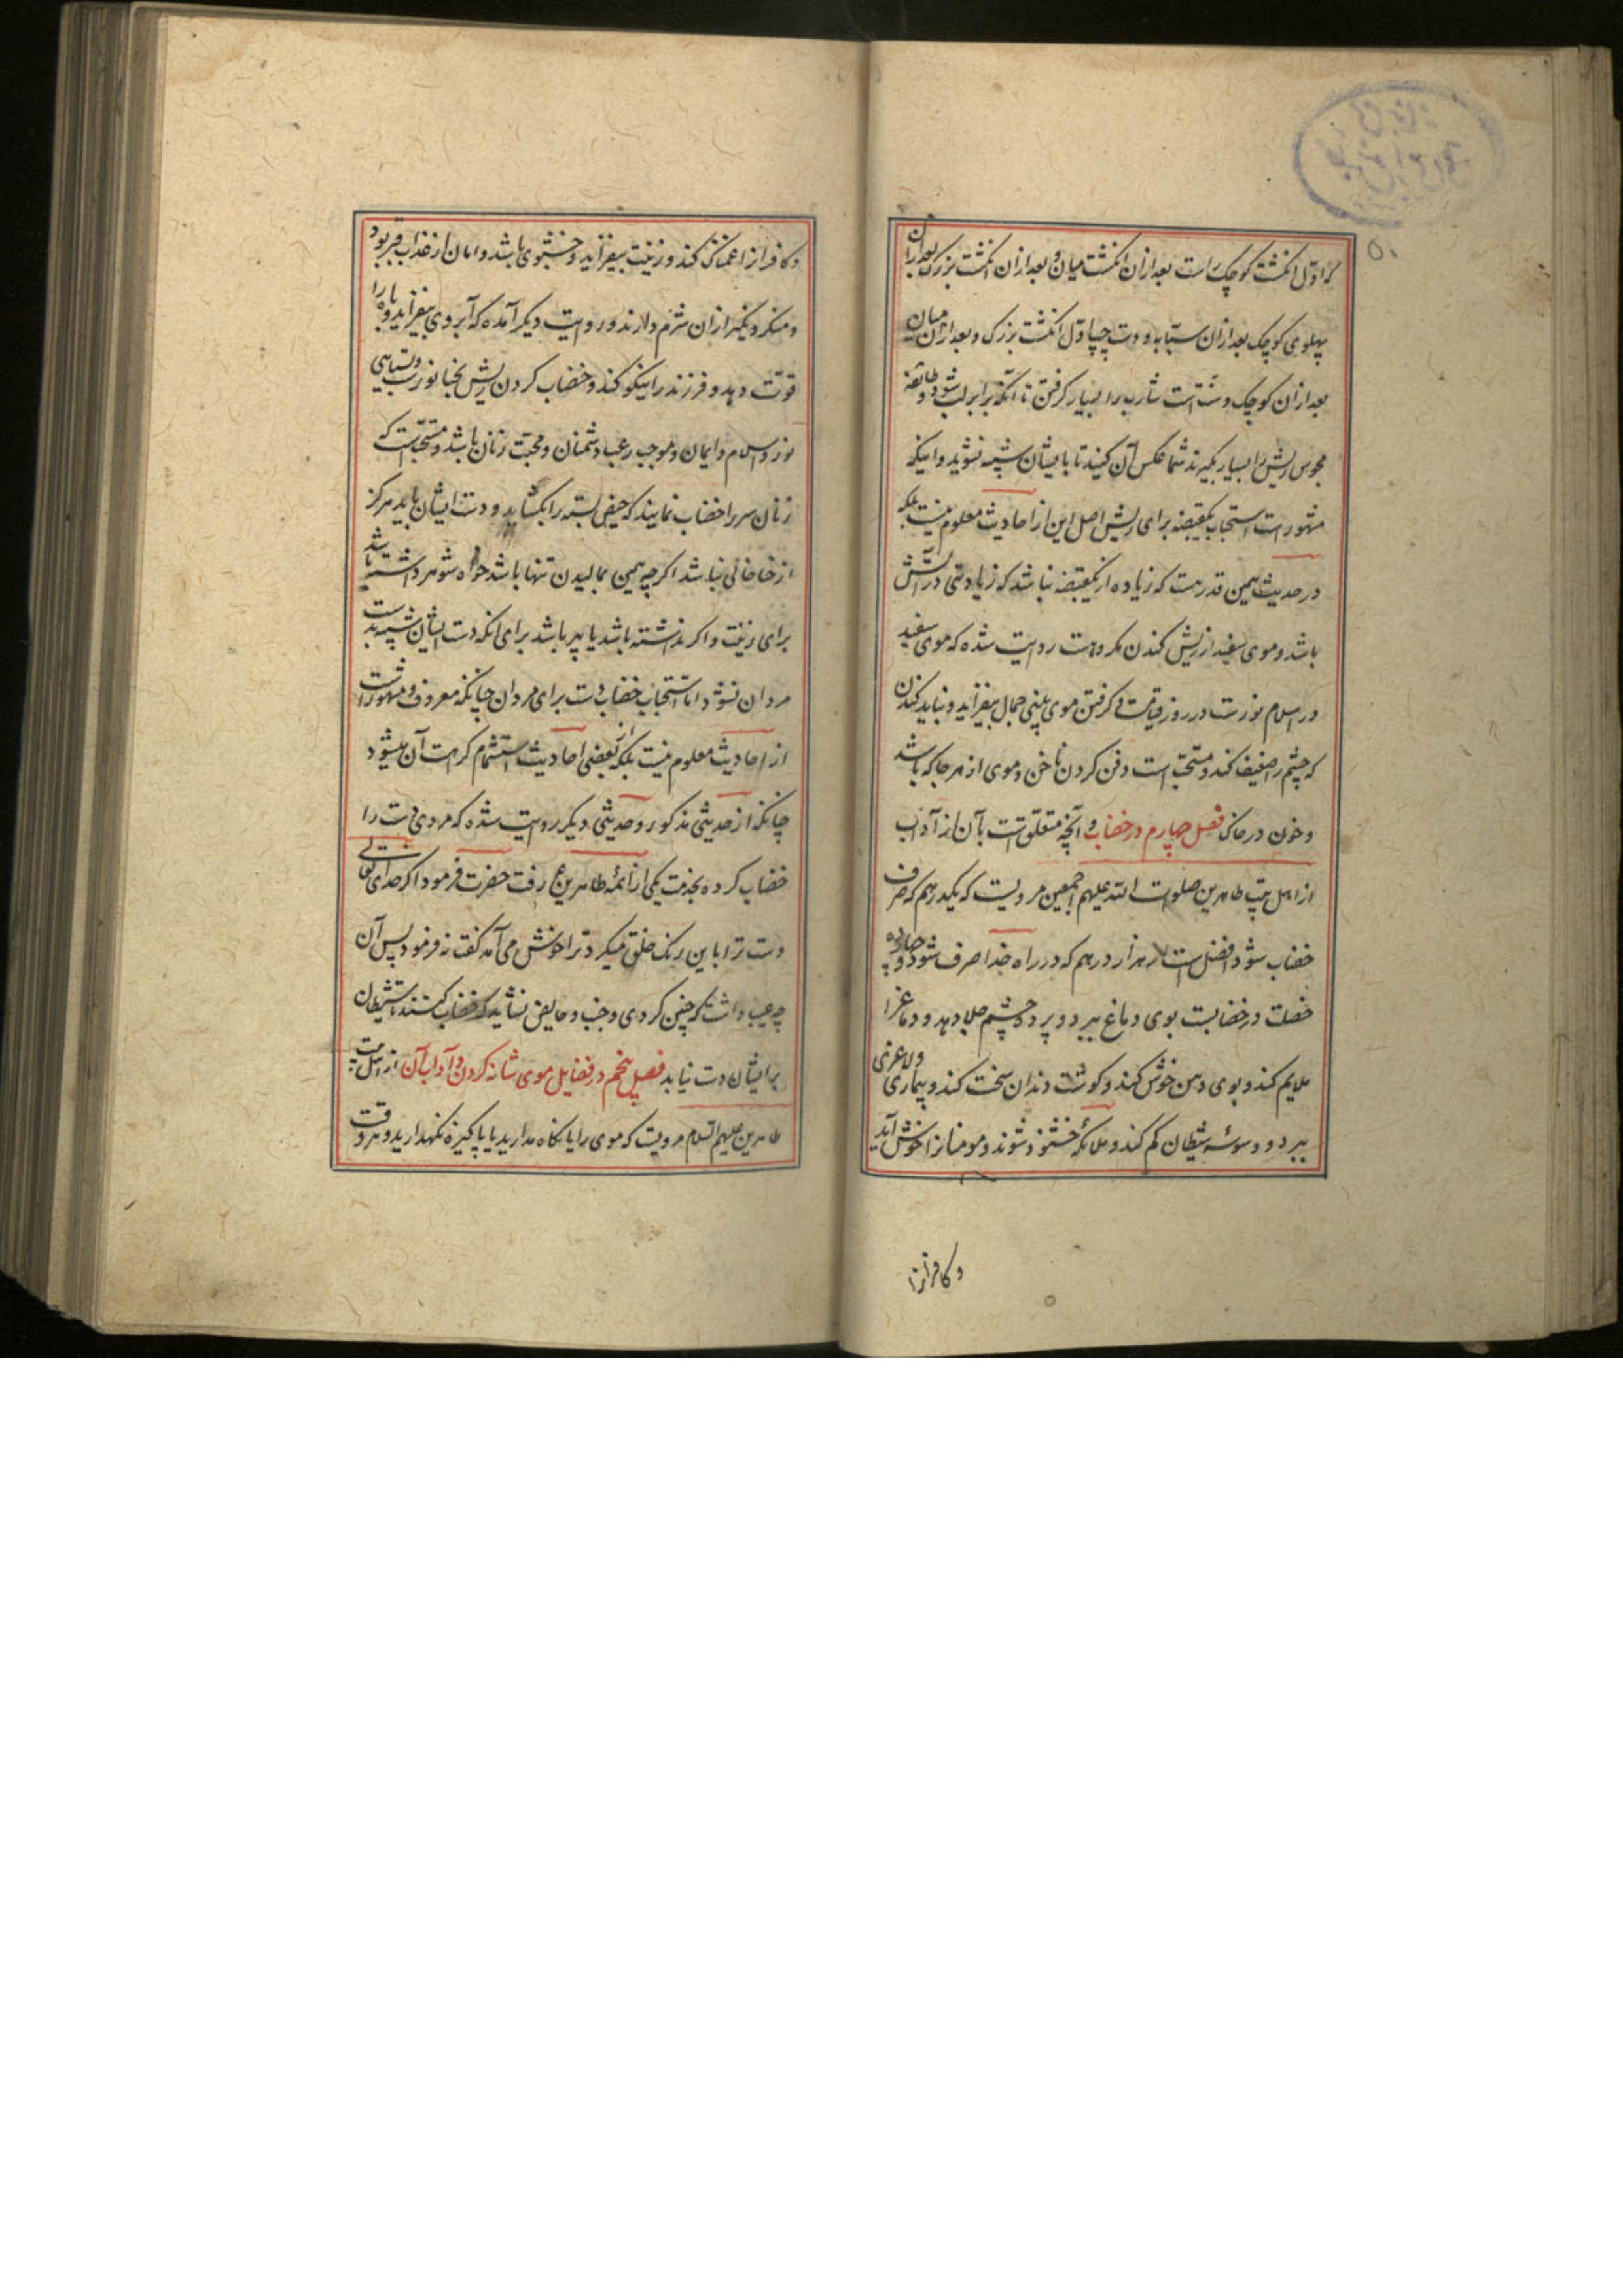 که اول انگشت کوچک راست بعد ازان انگشت میان و بعد ازان انگشت بزرک بعد ازان
پهلوی کوچک بعد ازان سبابه و دست چپ اول انگشت بزرک و بعد ازان میان
بعد ازان کوچک و سنّت است شارب را بسیار گرفتن تا آنکه برابر لب شود و طائفه
مجوس ریش را بسیار بگیرند شما عکس آن کنید تا بایشان شبیه نشوید و اینکه
مشهور است استحباب یکقبضه برای ریش اصل این از احادیث معلوم نیست بلکه
در حدیث همین قدر هست که زیاده از یکقبضه نباشد که زیادتی در آتش
باشد و موی سفید از ریش کندن مکروهست روایت شده که موی سفید
در اسلام نورست در روز قیامت و گرفتن موی بینی جمال بیفزاید و نباید کندن
که چشم را ضعیف کند و مستحبّ است دفن کردن ناخن و موی از هر جا که باشد
و خون در خاک فصل چهارم در خضاب و آنچه متعلّق است بآن از آداب
از اهل بیت طاهرین صلوات الله علیهم اجمعین مرویست که یکدرهم که صرف
خضاب شود افضل است از هزار درهم که در راه خدا صرف شود و چهارده
خصلت در خضابست بوی دماغ ببرد و پرده چشم جلا دهد و دماغرا
ملایم کند و بوی دهن خوش کند و گوشت دندان سخت کند و بیماری ولاغری
ببرد و وسوسه شیطان کم کند و ملائکه خشنود شوند و مومنانرا خوش آید
وکافرانرا
وکافرانرا غمناک کند و زینت بیفزاید و خشبوی باشد و امان از عذاب قبر بود
و منکر و نکیر ازان شرم دارند و روایت دیگر آمده که آبروی بیفزاید و باه را
قوّت دهد و فرزند را نیکو کند و خضاب کردن ریش بحنا نورست و بسیاهی
نور و اسلام و ایمان و موجب رعب دشمنان و محبّت زنان باشد و مستحبّ است که
زنان سر را خضاب نمایند که حیض بسته را بگشاید و دست ایشان باید هرگز
از حنا خالی نباشد اگرچه همین بمالیدن تنها باشد خواه شوهر داشته باشد
برای زینت و اگر نداشته باشد یا پیر باشد برای انکه دست ایشان شبیه بدست
مردان نشود اما استحباب خضاب دست برای مردان چنانکه معروف و مشهور است
از احادیث معلوم نیست بلکه از بعضی احادیث استشمام کراهت آن میشود
چنانکه از حدیثی مذکور و حدیثی دیگر روایت شده که مردی دست را
خضاب کرده بخدمت یکی از ائمّه طاهرین ع رفت حضرت فرمود اگر خدای تعالی
دست ترا باین رنک خلق میکرد ترا خوش می آمد گفت نه فرمود پس آن
چه عیب داشت که چنین کردی و جنب و حایض نشاید که خضاب کنند تا شیطان
برایشان دست نیابد فصل پنجم در فضایل موی شانه کردن و آداب آن از اهل بیت
طاهرین علیهم السلام مرویست که موی را یا نگاه مدارید یا پاکیزه نگهدارید و هر وقت